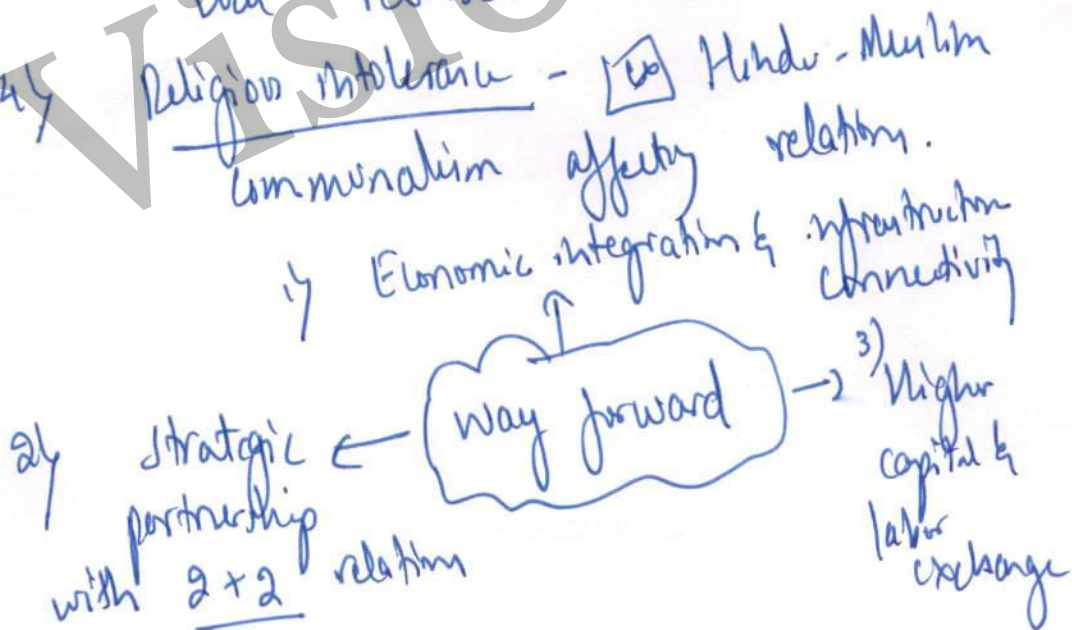 4) Religious intolerance - Hindu-Muslim
communalism affecting relation.
1) Economic integration & infrastructure
connectivity
way forward
2) strategic
partnership
with 2+2 relation
3) Higher
capital &
labor
exchange